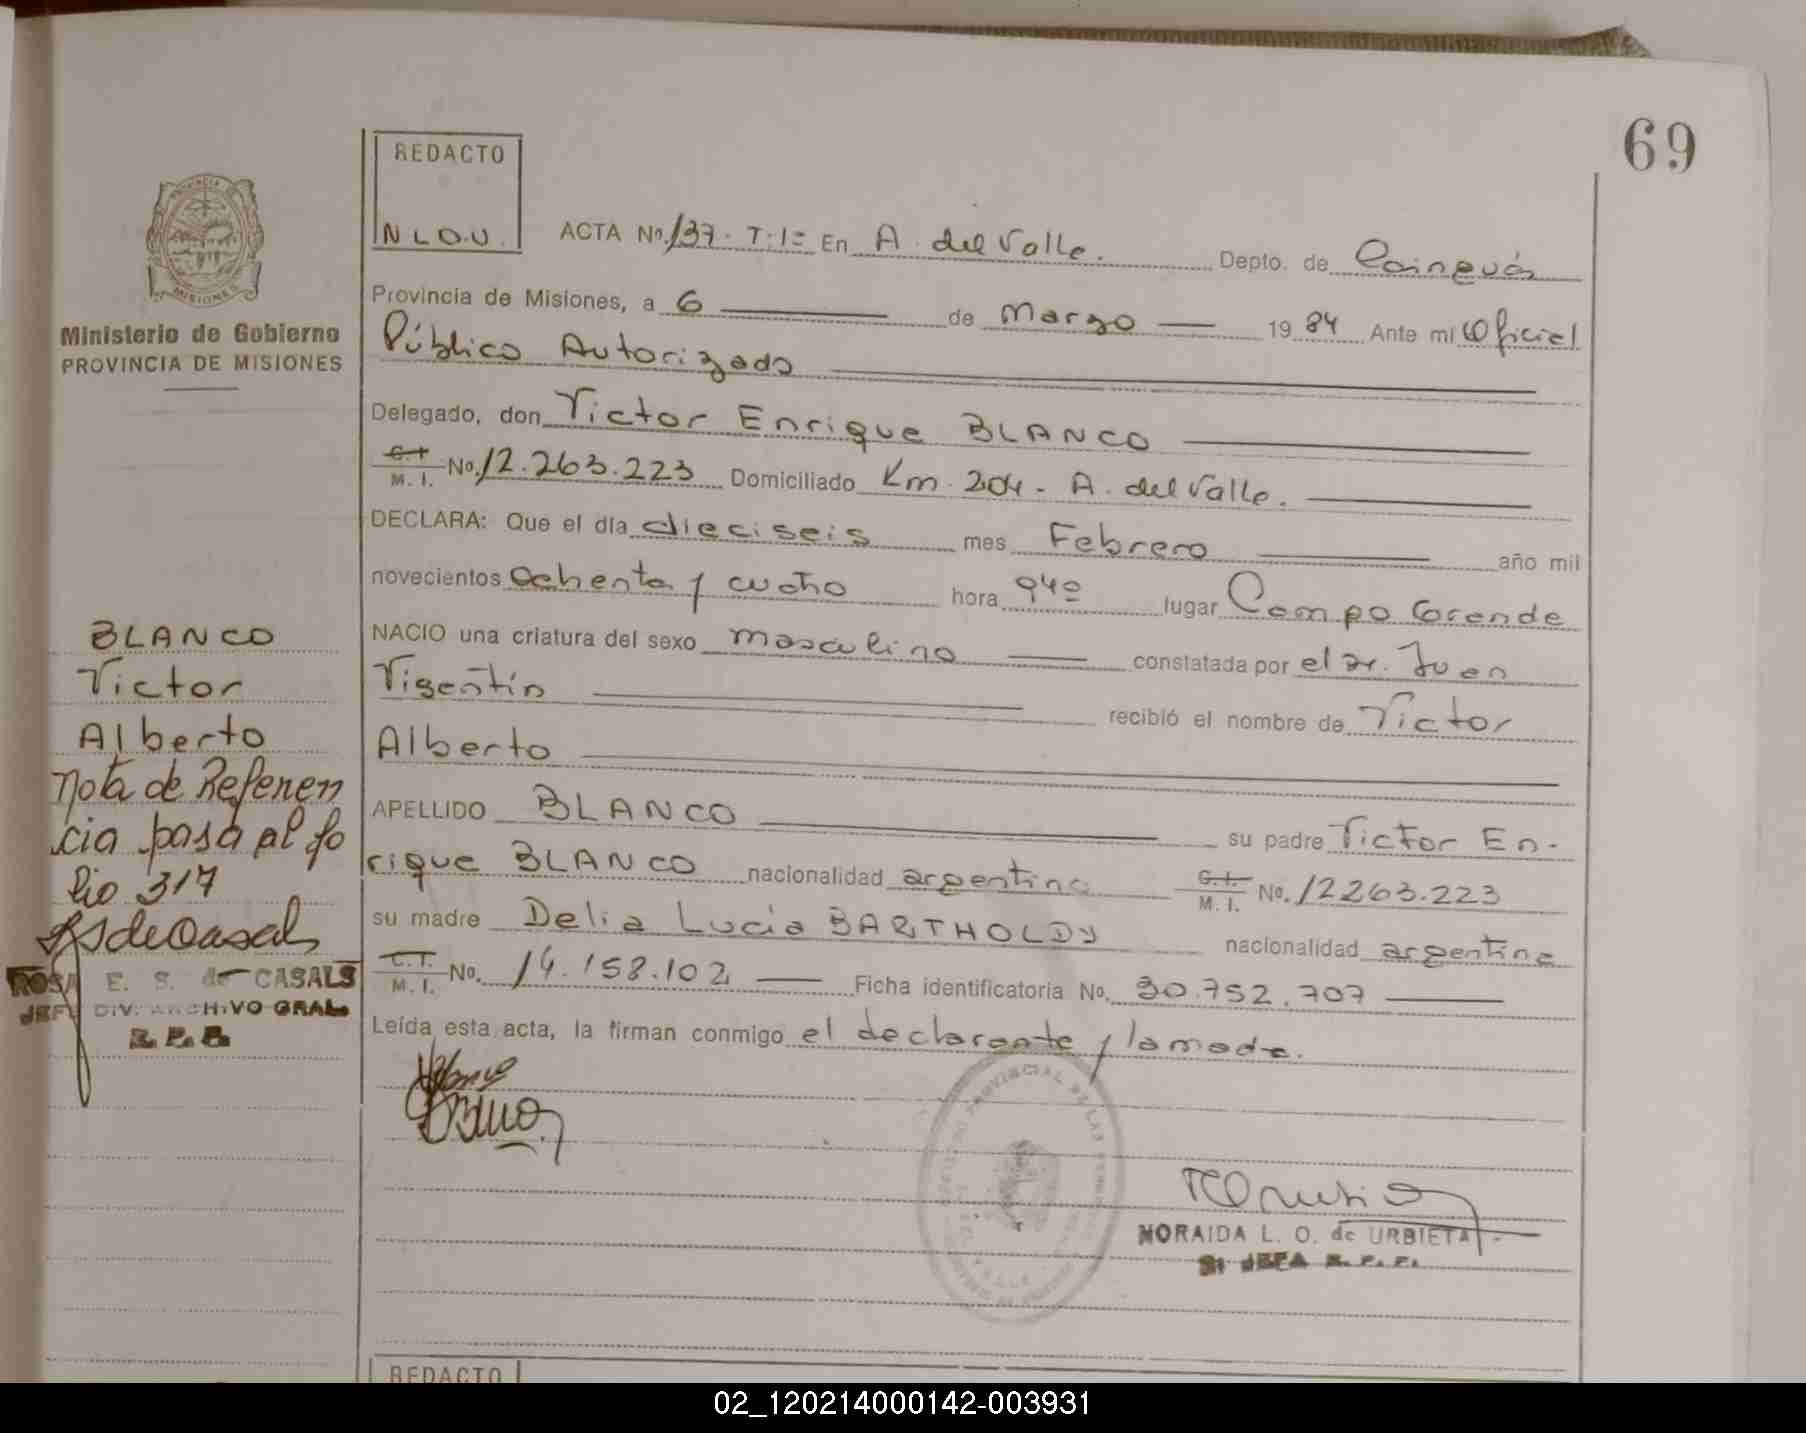 69
REDACTO
N L O.U.
ACTA No. 137 - T: 1= En A. del Valle. Depto. de Cainguás
Provincia de Misiones, a 6 de Marzo 19 84 Ante mi Oficial
Público Autorizado
Delegado, don Victor Enrique BLANCO
C.I. M. I. No. 12.263.223 Domiciliado Km. 204 - A. del Valle.
DECLARA: Que el día dieciseis mes Febrero año mil
novecientos ochenta y cuatro hora 940 lugar Campo Grande
NACIO una criatura del sexo masculino constatada por el Dr. Juan
Visentín recibió el nombre de Victor
Alberto
APELLIDO BLANCO su padre Victor En-
rique BLANCO nacionalidad argentina C.I. M. I. No. 12263.223
su madre Delia Lucía BARTHOLDY nacionalidad argentina
C.I. M. I. No. 14.158.102 Ficha identificatoria No. 30.752.707
Leída esta acta, la firman conmigo el declarante y la madre.
NORAIDA L. O. de URBIETA
PROVINCIA DE MISIONES
Ministerio de Gobierno
PROVINCIA DE MISIONES
BLANCO
Victor
Alberto
Nota de Referen
cia pasa al fo
lio 317
ROSA E. S. de CASALS
JEFA DIV. ARCHIVO GRAL.
R. P. P.
REDACTO
02_120214000142-003931